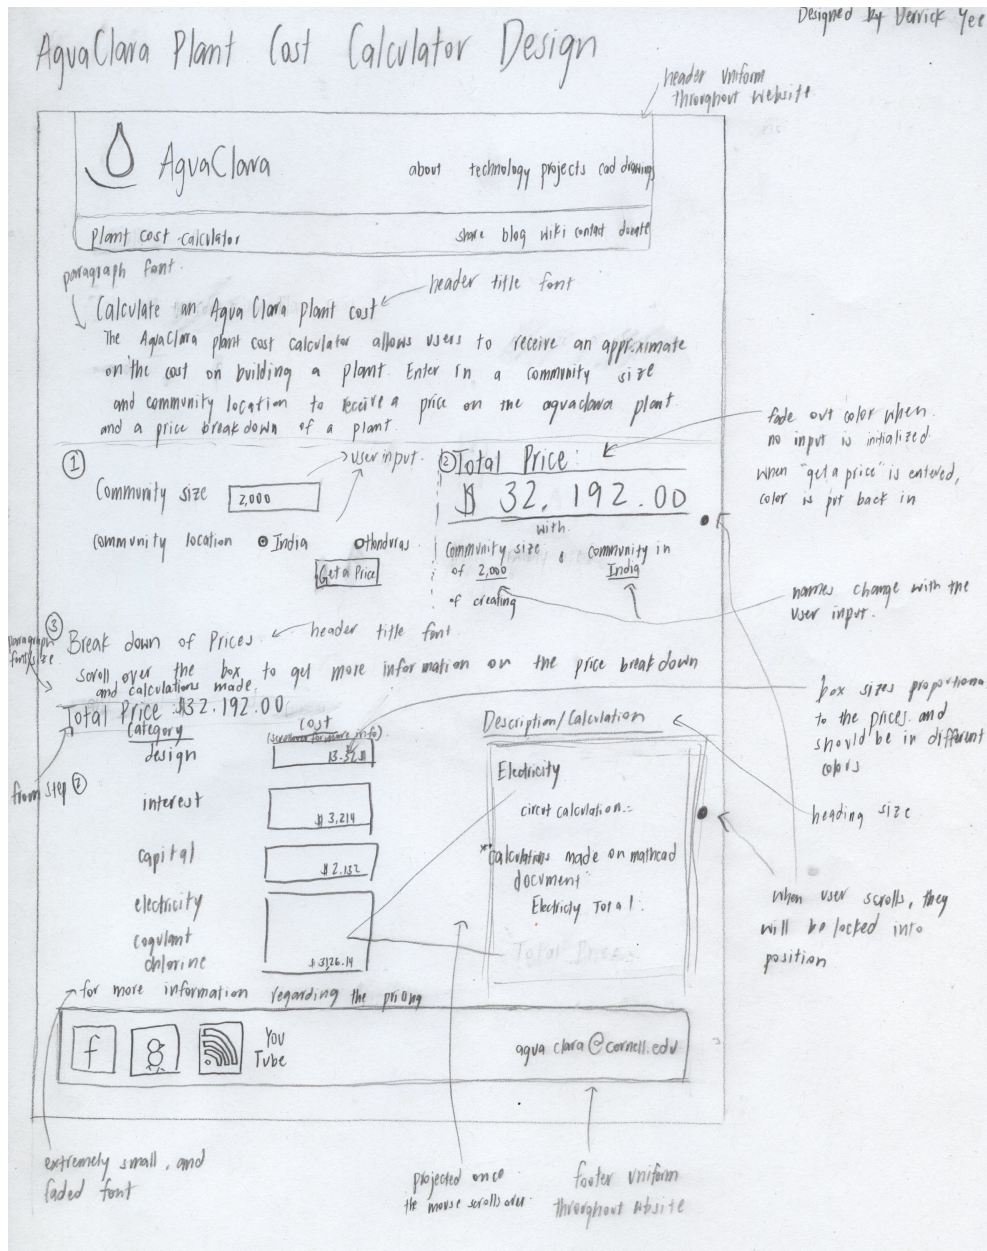 Designed by Derrick Yee
AguaClara Plant Cost Calculator Design
header uniform
throughout website
AguaClara
about technology projects cad drawings
Plant cost calculator
share blog wiki contact donate
paragraph font.
header title font
Calculate an Agua Clara plant cost
The AguaClara plant cost calculator allows users to receive an approximate
on the cost on building a plant. Enter in a community size
and community location to receive a price on the aguaclara plant
and a price breakdown of a plant.
fade out color when
no input is initialized.
when "get a price" is entered,
color is put back in
① user input.
Community size 2,000
community location India Honduras.
Get a Price
② Total Price:
$ 32,192.00
with
Community size
of 2,000
of creating
&
community in
India
names change with the
user input.
③
Break down of Prices
header title font
paragraph
font size
scroll over the box to get more information on the price breakdown
and calculations made.
Total Price: $32,192.00
from step ②
Category
cost
(scroll over for more info)
design
interest $ 3,214
capital $ 2,132
electricity
coqulant
chlorine $ 3,126.14
Description/Calculation
Electricity
circut calculation:
**calculations made on mathcad
document**
Electricty Total:
Total Price:
box sizes proportional
to the prices. and
should be in different
colors
heading size
when user scrolls, they
will be locked into
position
for more information regarding the pricing
f
g
You
Tube
agua clara@cornell.edu
extremely small, and
faded font
projected once
the mouse scrolls over.
footer uniform
throughout wbsite